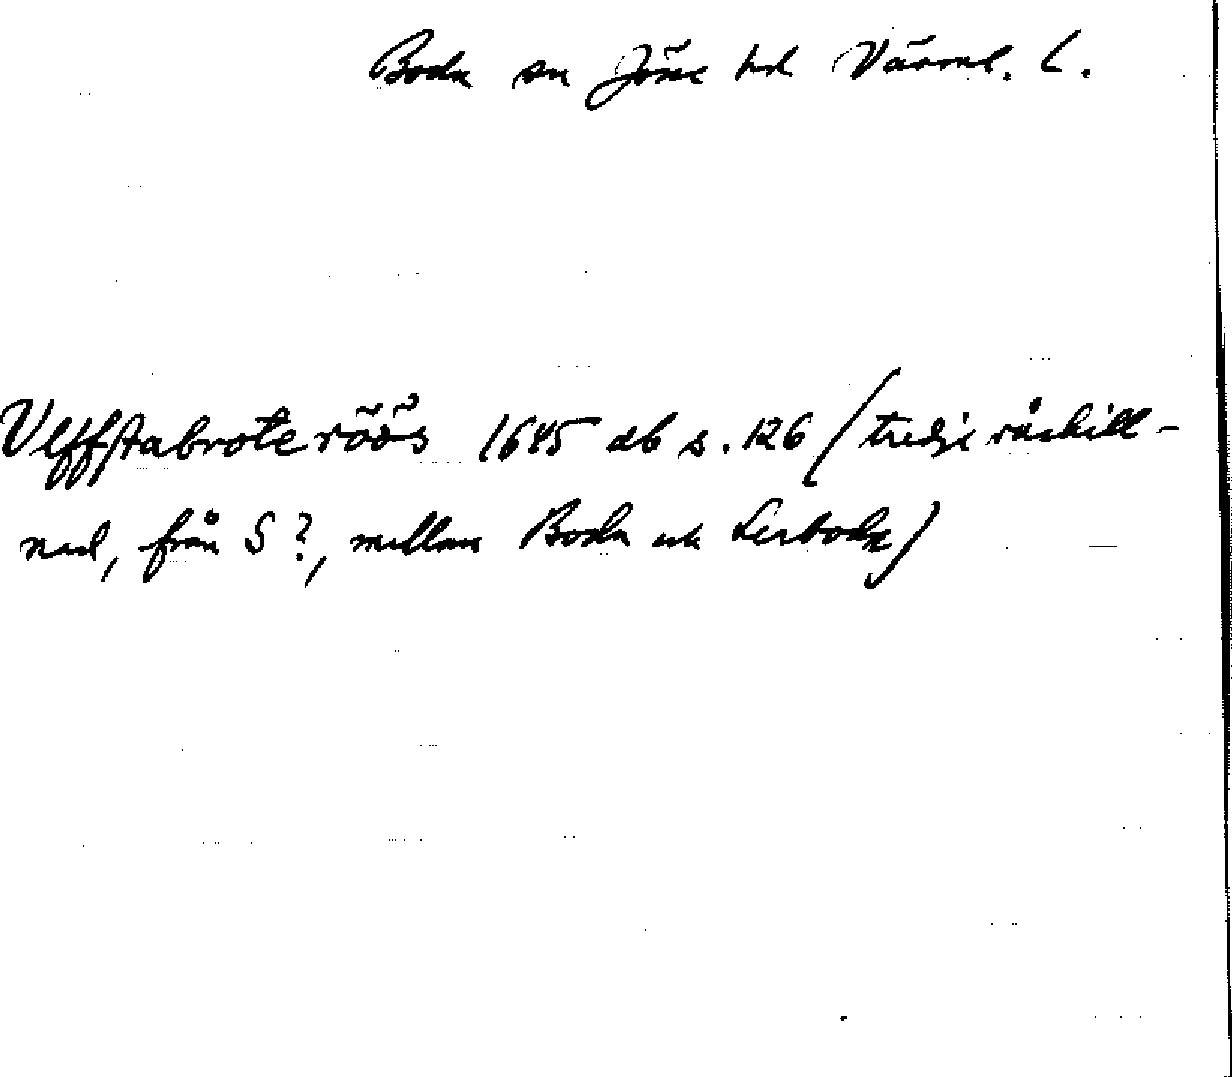 Boda sn Jösse hd Värml. L.
Ulffstabrote röös 1645 db s. 126 (tredje råskill-
nad, från S?, mellan Boda och Lerboda)